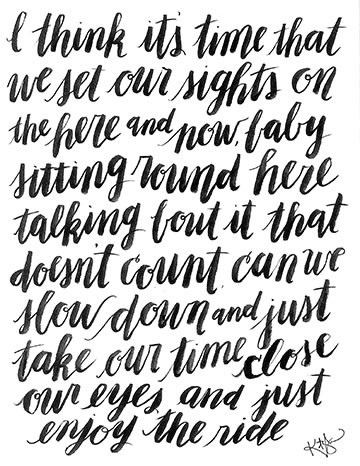 I think it's time that
we set our sights on
the here and now, baby
sitting round here
talking bout it that
doesn't count, can we
slow down and just
take our time, close
our eyes and just
enjoy the ride